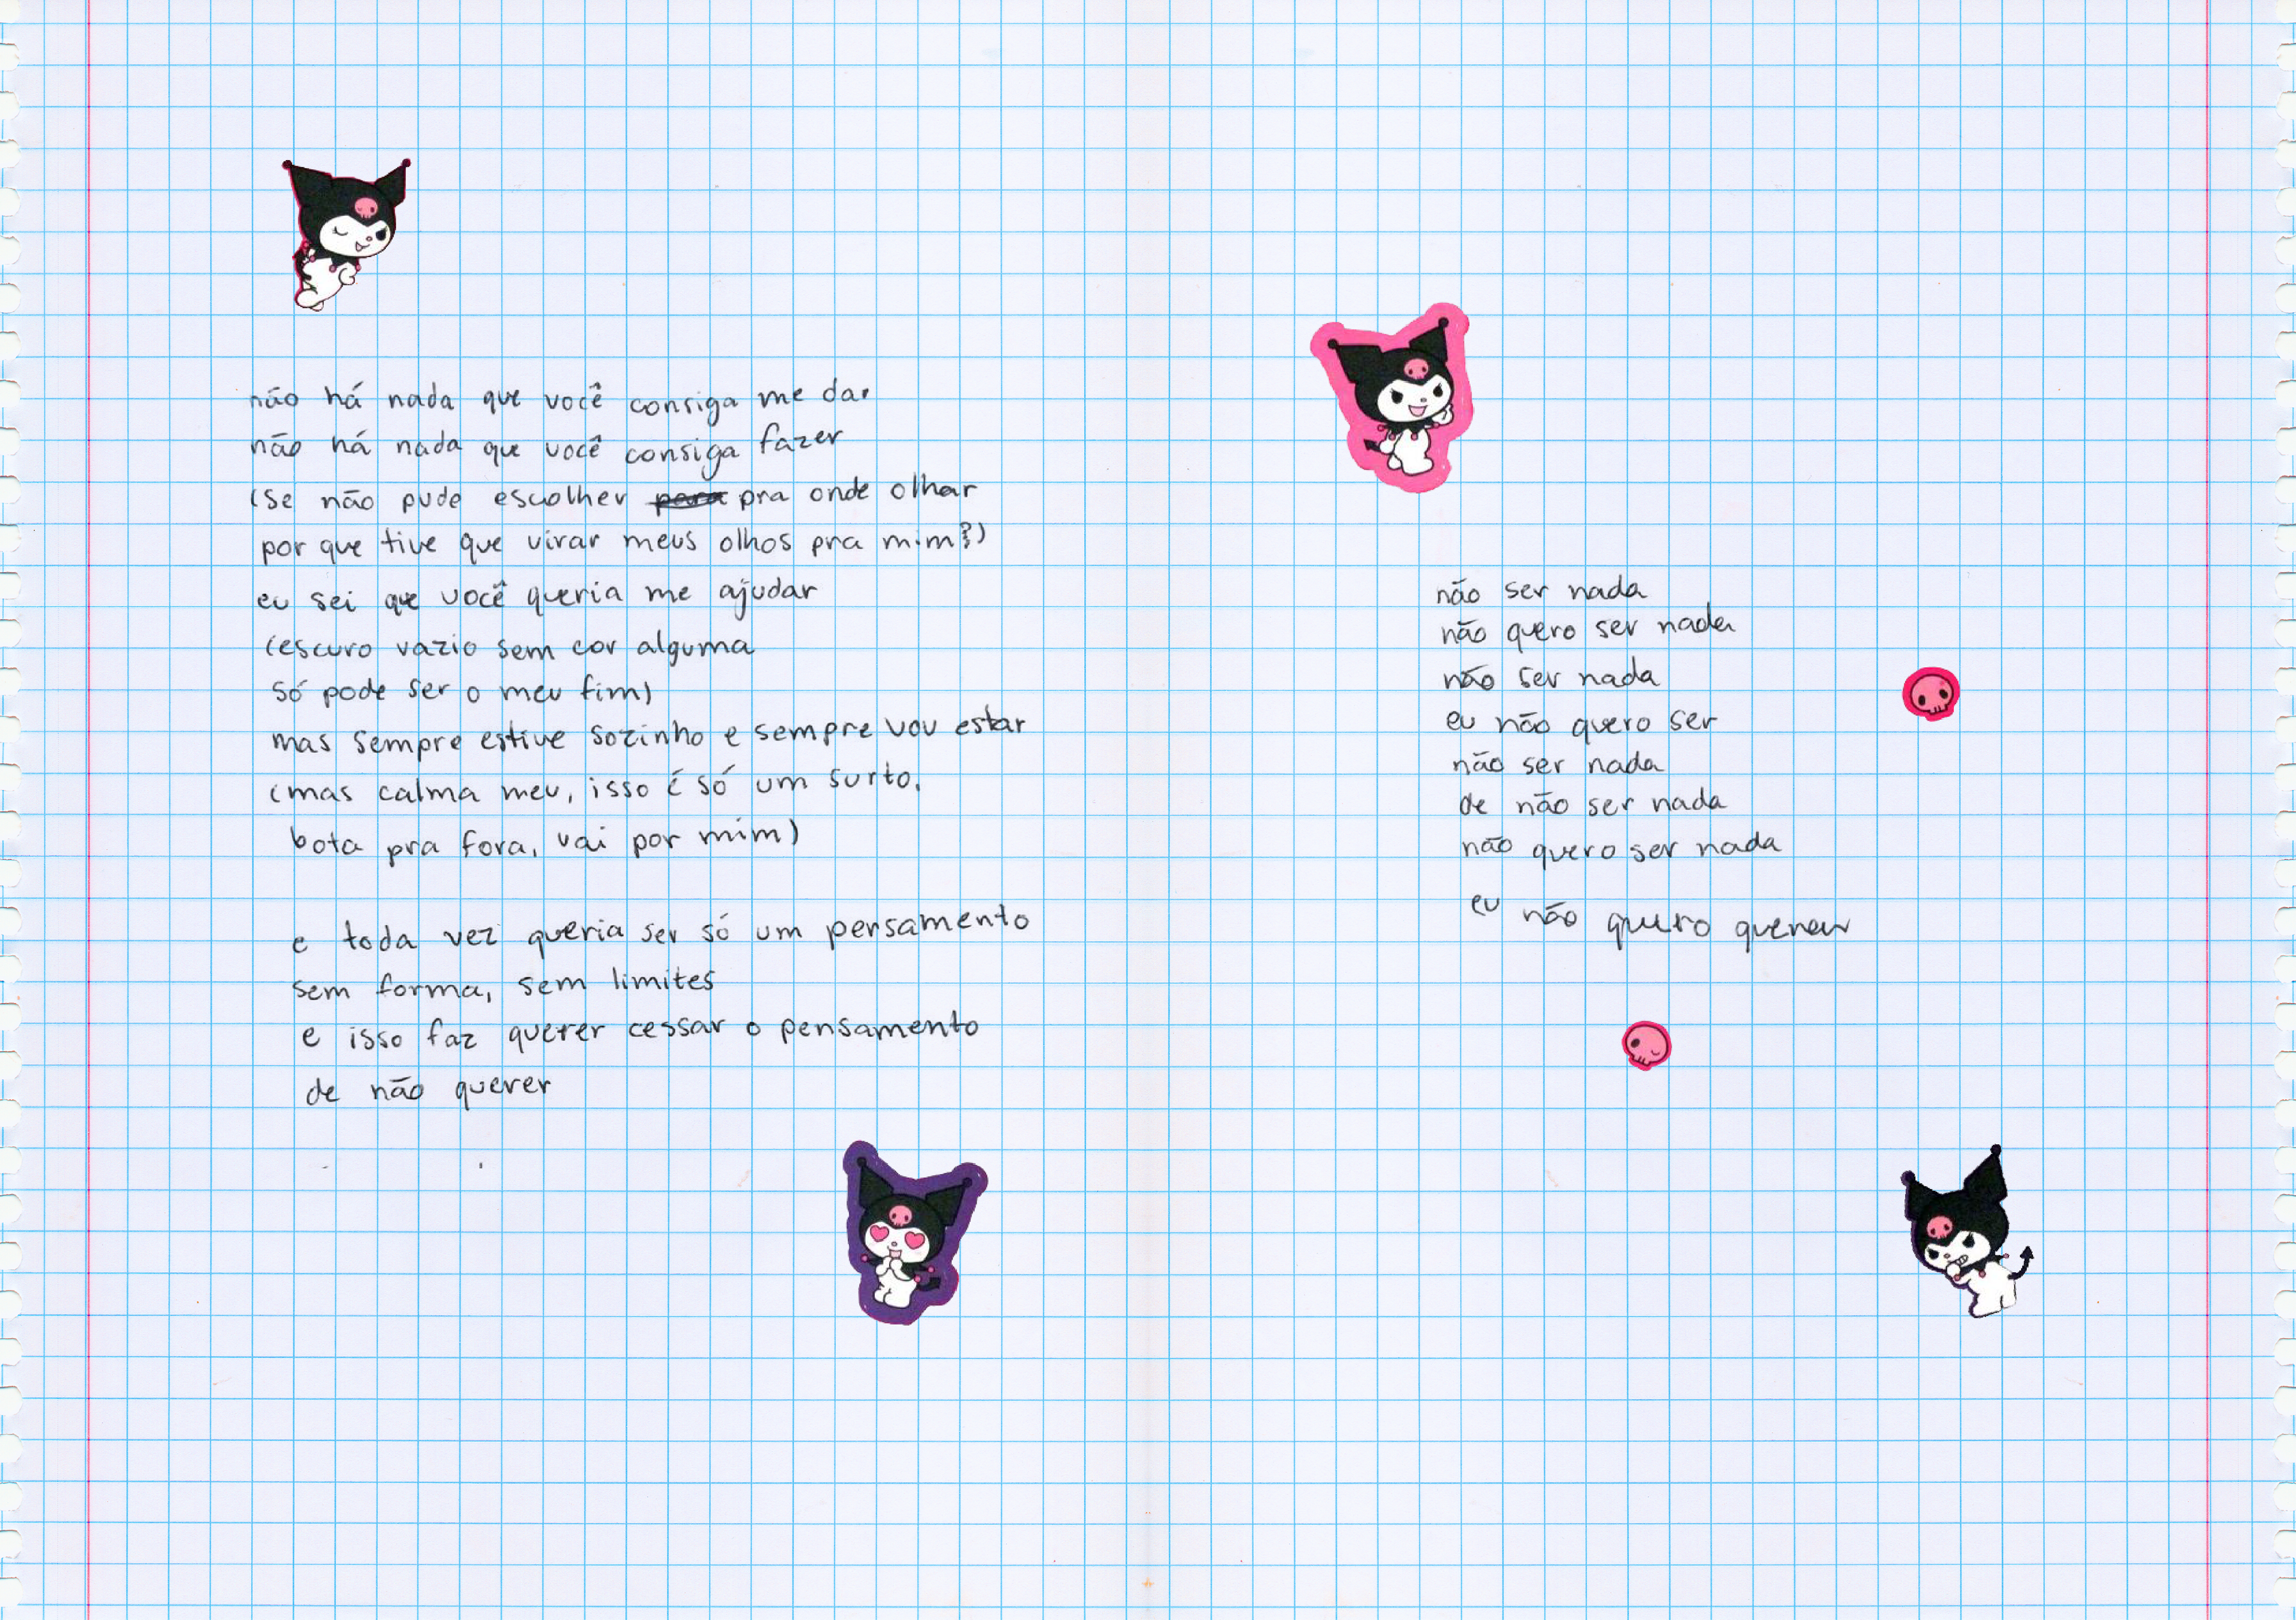 não há nada que você consiga me dar
não há nada que você consiga fazer
(se não pude escolher para pra onde olhar
por que tive que virar meus olhos pra mim?)
eu sei que você queria me ajudar
(escuro vazio sem cor alguma
só pode ser o meu fim)
mas sempre estive sozinho e sempre vou estar
(mas calma meu, isso é só um surto,
bota pra fora, vai por mim)
e toda vez queria ser só um pensamento
sem forma, sem limites
e isso faz querer cessar o pensamento
de não querer
não ser nada
não quero ser nada
não ser nada
eu não quero ser
não ser nada
de não ser nada
não quero ser nada
eu não quero querer